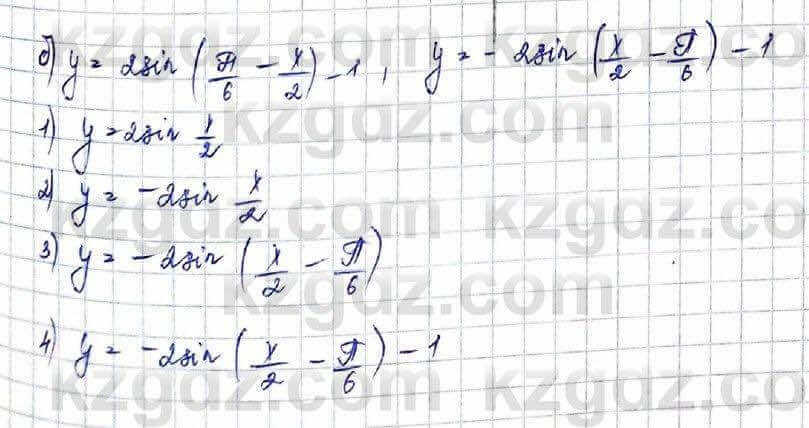 б) y = 2sin (π/6 − x/2) − 1, y = − 2sin (x/2 − π/6) − 1
1) y = 2sin x/2
2) y = −2sin x/2
3) y = −2sin (x/2 − π/6)
4) y = −2sin (x/2 − π/6) − 1
kzgdz.com kzgdz.co
kzgdz.com
kzgdz.com kzgdz.co
kzgdz.com
kzgdz.com kzgdz.co